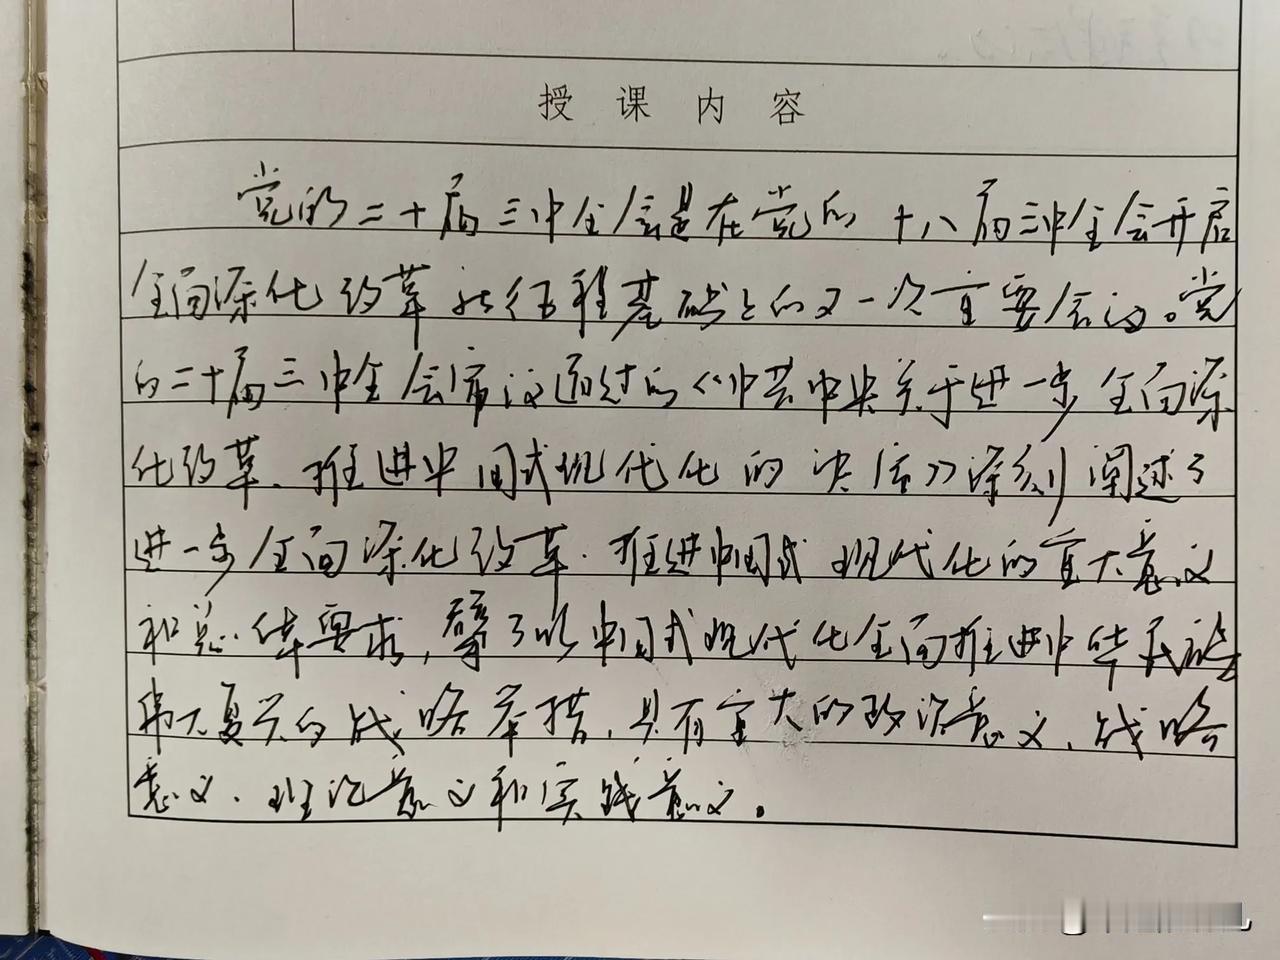 授课内容
党的二十届三中全会是在党的十八届三中全会开启
全面深化改革新征程基础上的又一次重要会议。党
的二十届三中全会审议通过的《中共中央关于进一步全面深
化改革、推进中国式现代化的决定》深刻阐述了
进一步全面深化改革、推进中国式现代化的重大意义
和总体要求，擘了以中国式现代化全面推进中华民族
伟大复兴的战略举措，具有重大的政治意义、战略
意义、理论意义和实践意义。